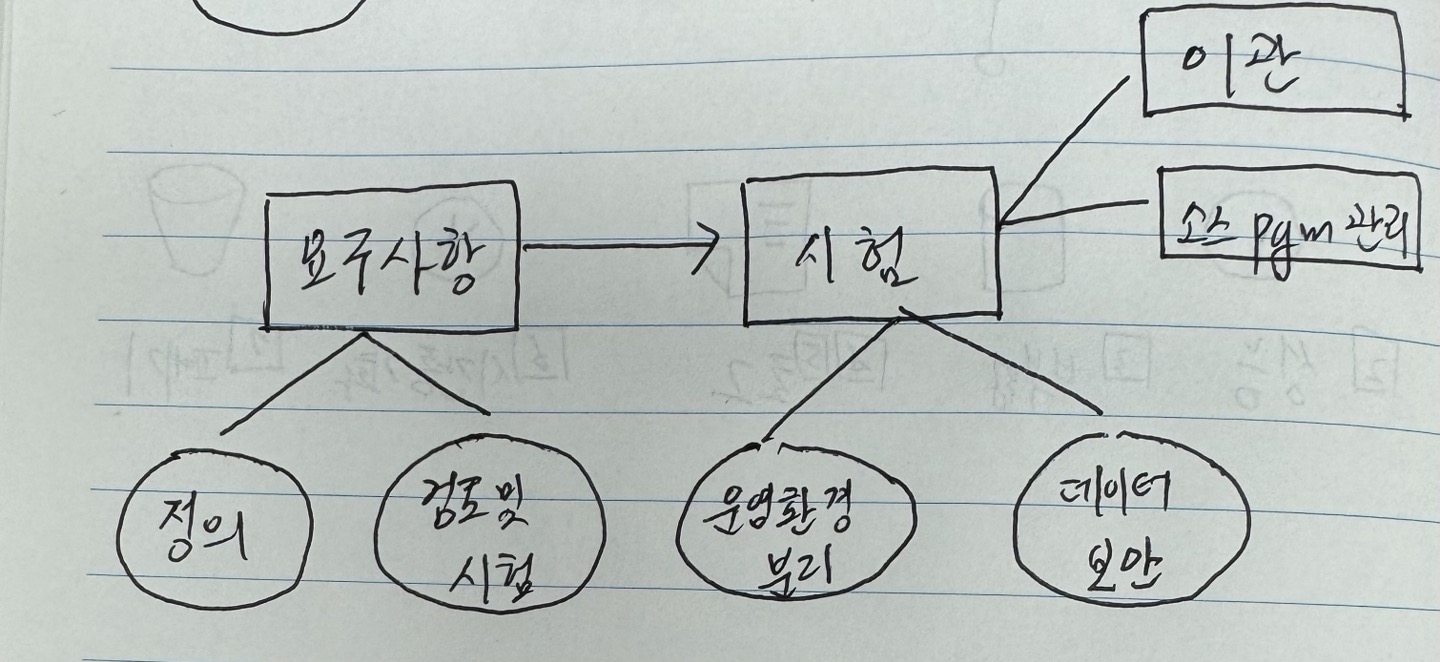 이관
소스 pgm 관리
요구사항
시험
정의
검토 및
시험
운영환경
분리
데이터
보안